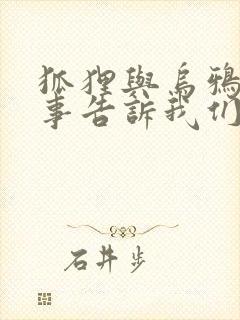 狐狸與烏鴉
事告訴我们
石井步